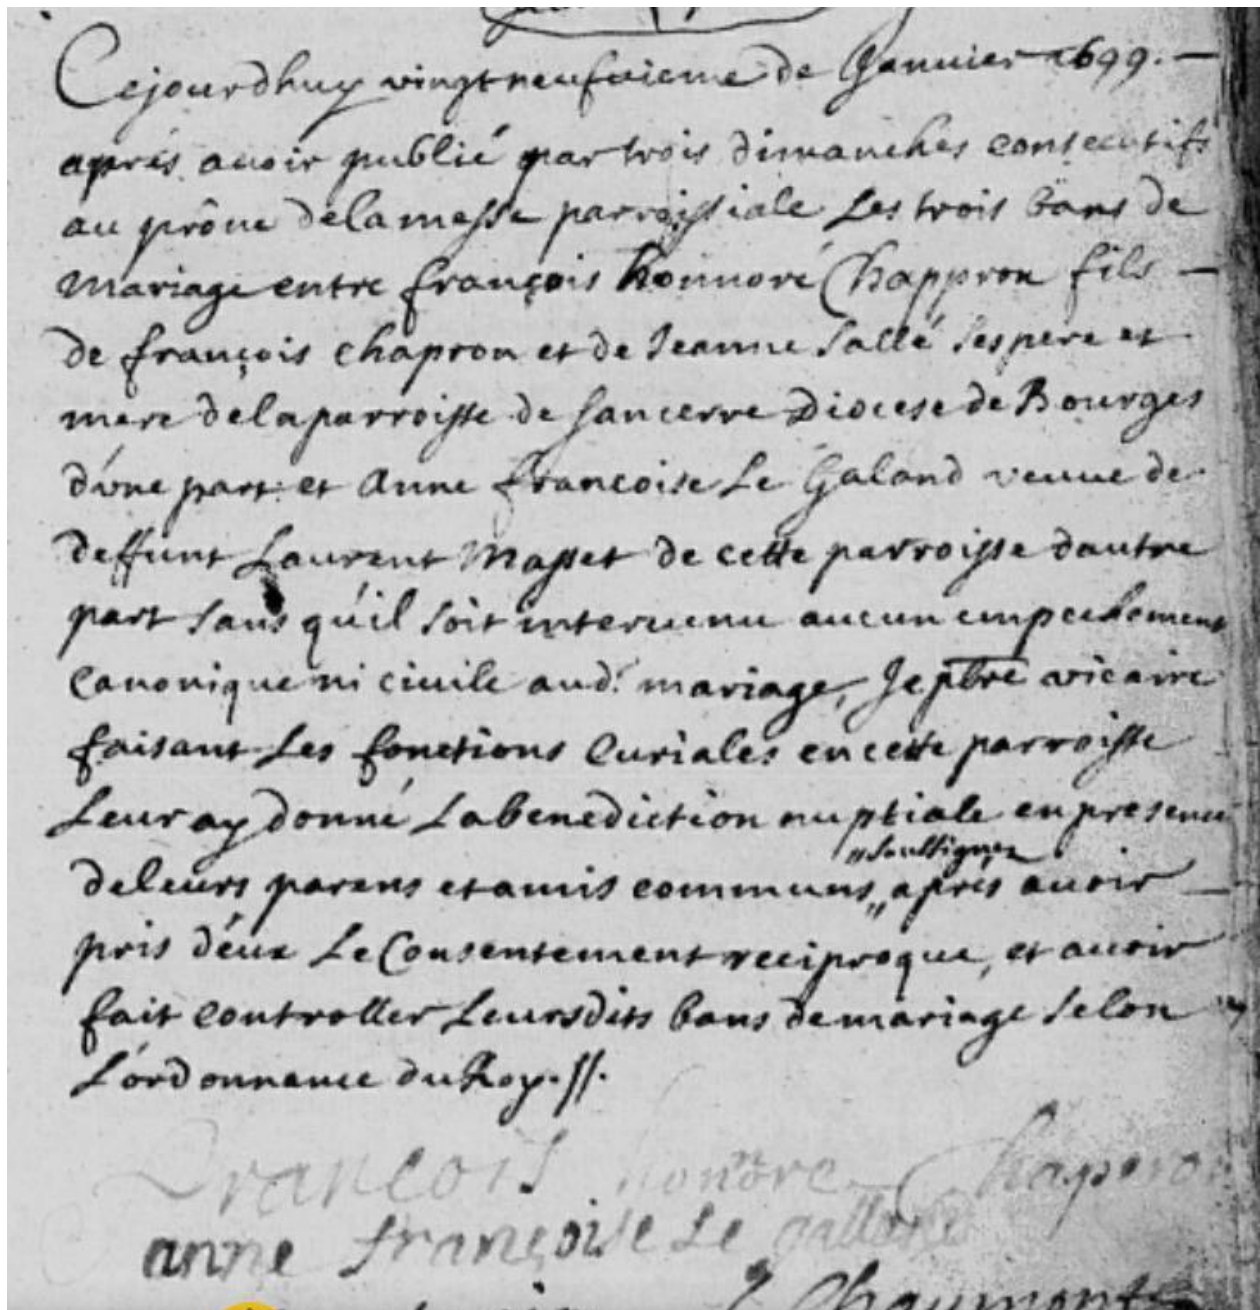 Cejourdhuy vingt neufuieme de Januier 1699. —
aprés auoir publié par trois dimanches consecutifs
au prône de la messe parroissiale Les trois bans de
mariage entre françois honnoré Chappron fils —
de françois chapron et de Jeanne Sallé ses pere et
mere de la parroisse de Sancerre Diocese de Bourges
d'vne part et Anne francoise Le Galand veuue de
deffunt Laurent Masset de cette parroisse dautre
part sans qu'il soit interuenu aucun empechement
canonique ni ciuile aud. mariage, Je pbre vicaire
faisant Les fonctions Curiales en cette parroisse
Leur ay donné La benediction nuptiale en presence
"soussignez
de leurs parens et amis communs,, aprés auoir —
pris d'eux Le Consentement reciproque, et auoir
fait controller Leursdits bans de mariage selon
L'ordonnance du Roy.//.
François honnore Chapron
anne françoise Le
Chaumont